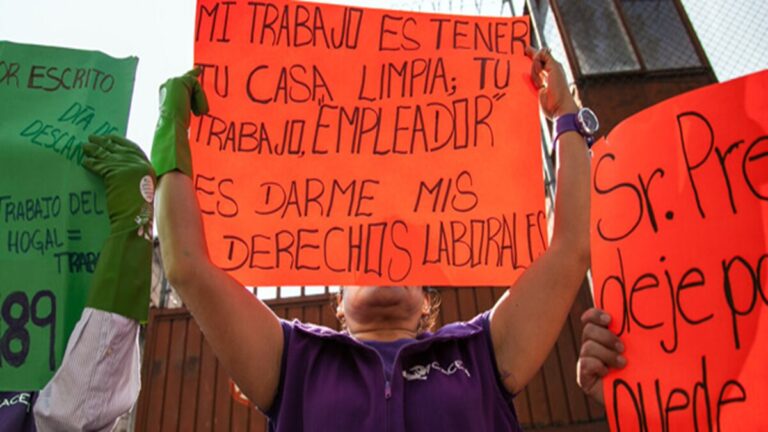 POR ESCRITO
DÍA DE
DESCANSO
TRABAJO DEL
HOGAR =
TRAB
189
MI TRABAJO ES TENER
TU CASA LIMPIA; TU
TRABAJO, "EMPLEADOR"
ES DARME MIS
DERECHOS LABORALES
Sr. Pre
deje pa
puede